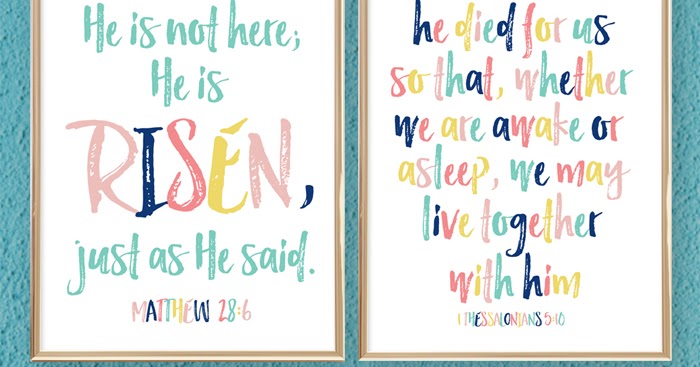 He is not here;
He is
RISEN,
just as He said.
MATTHEW 28:6
he died for us
so that, whether
we are awake or
asleep, we may
live together
with him
1 THESSALONIANS 5:10